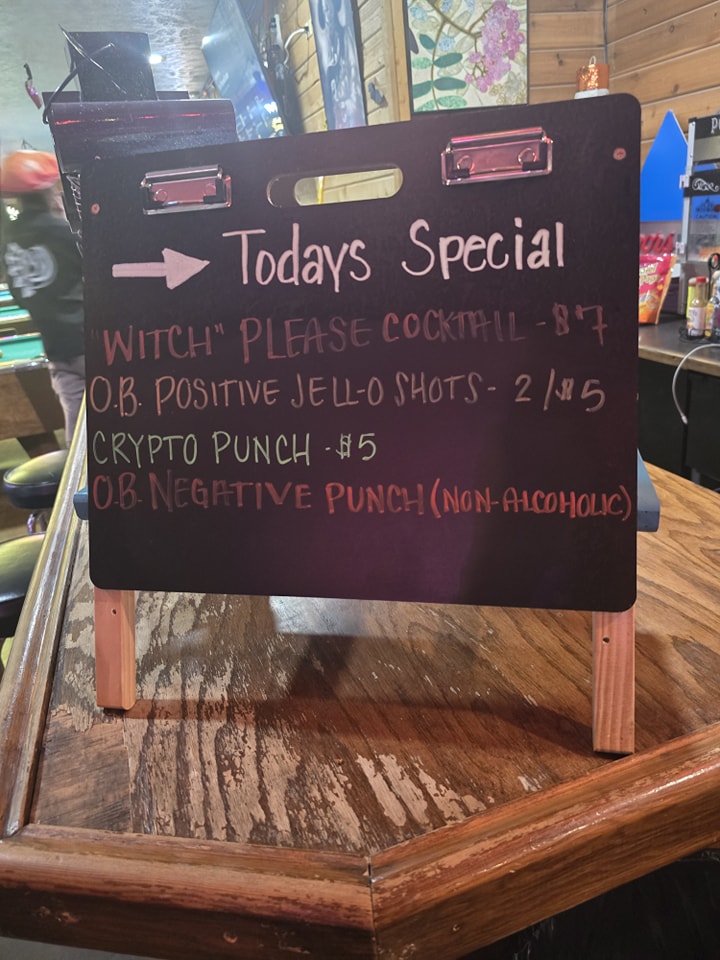 Todays Special
"WITCH" PLEASE COCKTAIL - $7
O.B. POSITIVE JELL-O SHOTS - 2/$5
CRYPTO PUNCH - $5
O.B. NEGATIVE PUNCH (NON-ALCOHOLIC)